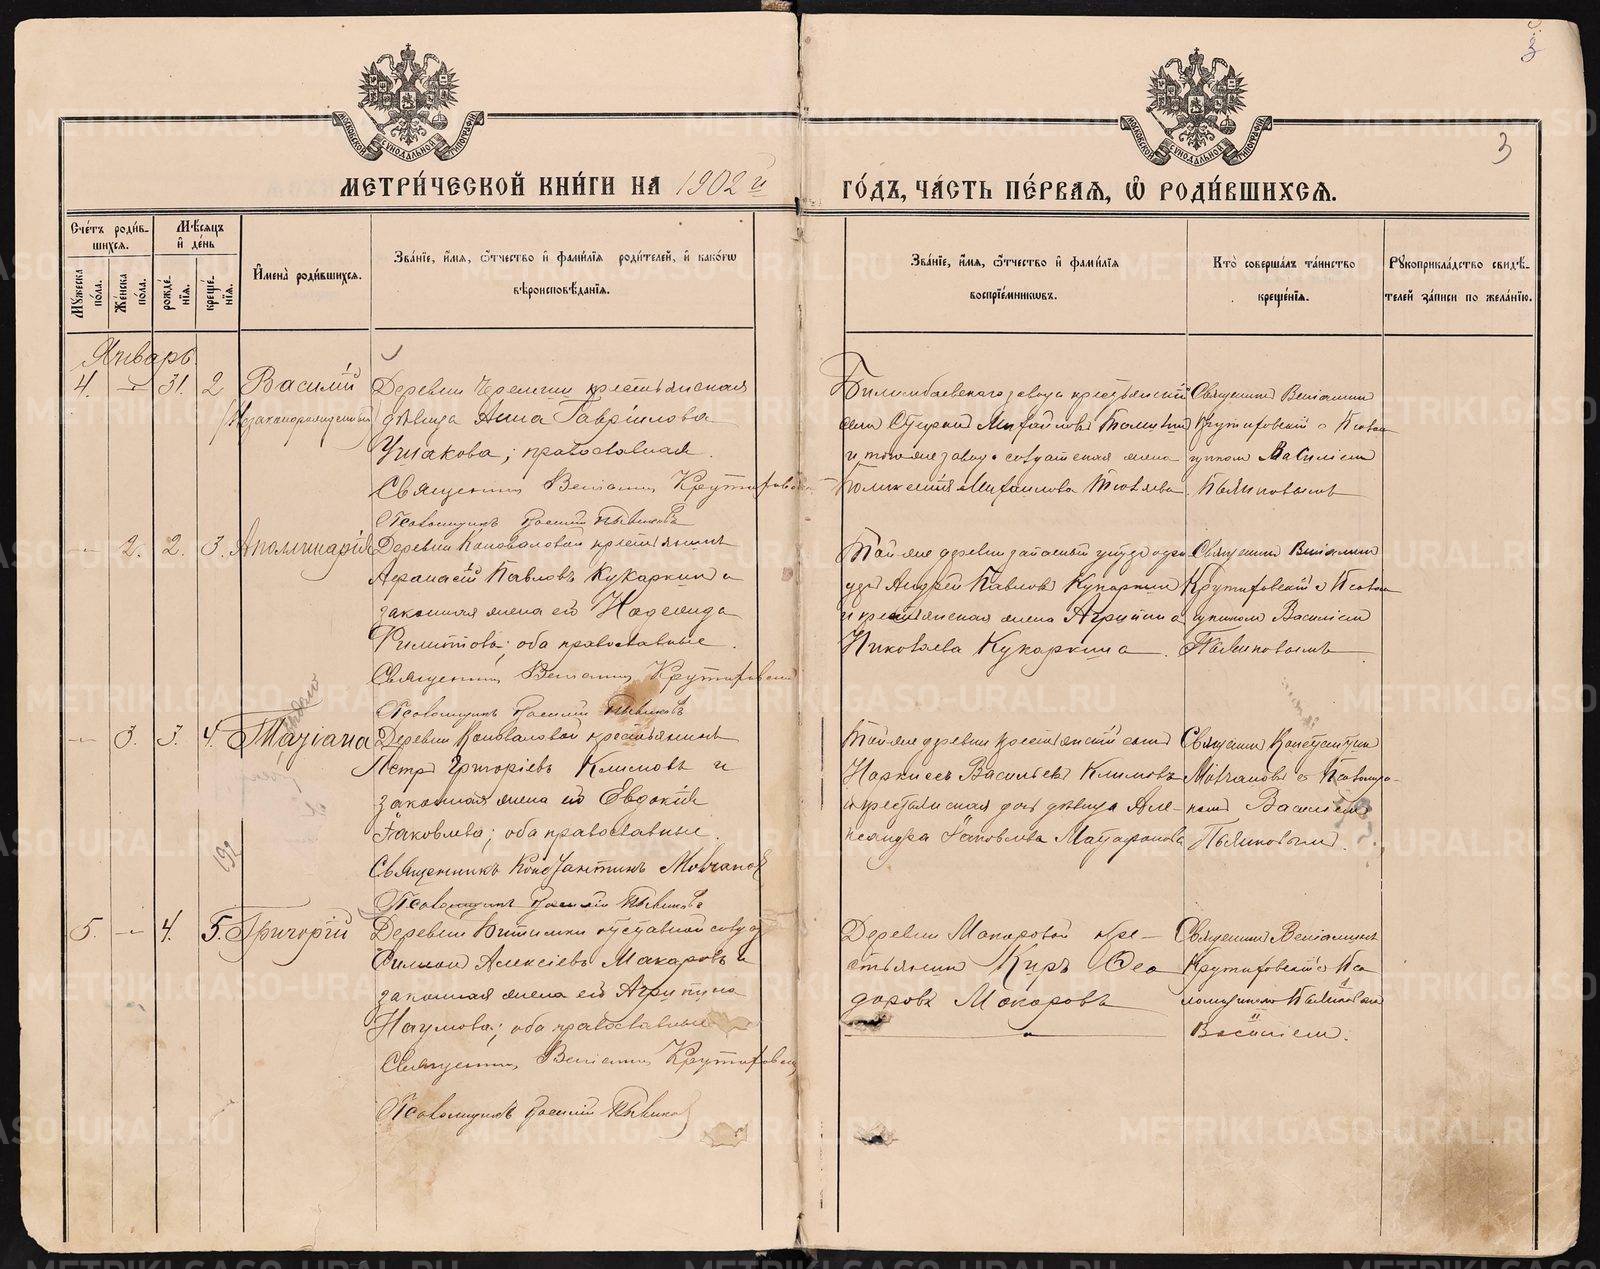 3
3
МЕТРИ́ЧЕСКОЙ КНИ́ГИ НА 1902 й ГО́ДЪ, ЧА́СТЬ ПЕ́РВАЯ, Ѡ РОДИ́ВШИХСЯ.
МОСКОВСКОЙ СУНОДАЛЬНОЙ ТИПОГРАФІИ
МОСКОВСКОЙ СУНОДАЛЬНОЙ ТИПОГРАФІИ
Сче́тъ роди́в-
шихся.
Мѣ́сяцъ
и҆ де́нь
Мꙋ́жеска
по́ла.
Же́нска
по́ла.
рожде́-
нїя.
креще́-
нїя.
И҆мена̀ роди́вшихся.
Зва́нїе, и҆́мя, ѻ҆́тчество и҆ фами́лїя роди́телей, и҆ како́гѡ
вѣроисповѣ́данїя.
Зва́нїе, и҆́мя, ѻ҆́тчество и҆ фами́лїя
воспрїе́мникѡвъ.
Кто̀ соверша́лъ та́инство
креще́нїя.
Рꙋкоприкла́дство свидѣ́-
телей за́писи по жела́нїю.
Январь
4. — 31. 2 Василій
(Незаконорожденный)
Деревни крестьянская
дѣвица Анна Гаврилова
Ушакова; православная.
Священникъ Веніаминъ Крутиховскій
Псаломщикъ Василій Пьянковъ
Билимбаевскаго завода крестьянскій
сынъ Михайловъ
и того же завода солдатская жена
Михаилова
Священникъ Веніаминъ
Крутиховскій с Псалом
щикомъ Василіемъ
Пьянковымъ
— 2. 2. 3. Аполинарія
Деревни Коноваловой крестьянинъ
Афанасій Павловъ Кукаркинъ и
законная жена его Надежда
Филиппова; оба православные.
Священникъ Веніаминъ Крутиховскій
Псаломщикъ Василій Пьянковъ
Той же деревни запасный
Андрей Павловъ Кукаркинъ
и крестьянская жена
Николаева Кукаркина.
Священникъ Веніаминъ
Крутиховскій с Псалом
щикомъ Василіемъ
Пьянковымъ
— 3. 3. 4. Татіана
Деревни Коноваловой крестьянинъ
Петръ Григоріевъ Климовъ и
законная жена его Евдокія
Яковлева; оба православные.
Священникъ Константинъ Молчановъ
Псаломщикъ Василій Пьянковъ
Той же деревни крестьянскій сынъ
Наркиссъ Васильевъ Климовъ
и крестьянская дочь дѣвица Але-
ксандра Яковлева
Священникъ Константинъ
Молчановъ с Псаломщи-
комъ Василіемъ
Пьянковымъ.
192
5. — 4. 5. Григорій
Деревни Битимки отставной солдатъ
Филиппъ Алексіевъ Макаровъ и
законная жена его Агрипина
Наумова; оба православные
Священникъ Веніаминъ Крутиховскій
Псаломщикъ Василій Пьянковъ
Деревни Макаровой кре-
стьянинъ Киръ Ѳео
доровъ Макаровъ
Священникъ Веніаминъ
Крутиховскій с Пса
ломщикомъ Пьянковымъ
Василіемъ.
METRIKI.GASO-URAL.RU